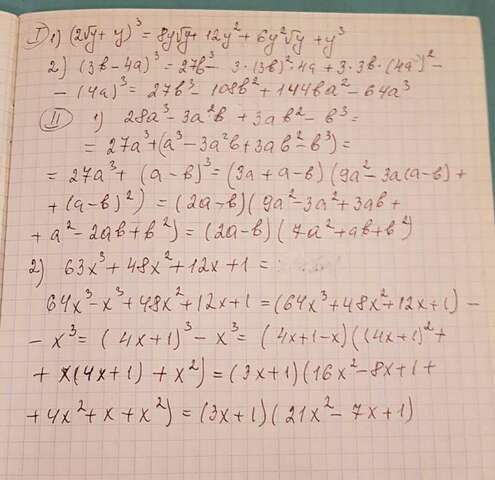 I 1) (2√y + y)³ = 8y√y + 12y² + 6y²√y + y³
2) (3b - 4a)³ = 27b³ - 3·(3b)²·4a + 3·3b·(4a)² -
- (4a)³ = 27b³ - 108b² + 144ba² - 64a³
II 1) 28a³ - 3a²b + 3ab² - b³ =
= 27a³ + (a³ - 3a²b + 3ab² - b³) =
= 27a³ + (a - b)³ = (3a + a - b)(9a² - 3a(a - b) +
+ (a - b)²) = (2a - b)(9a² - 3a² + 3ab +
+ a² - 2ab + b²) = (2a - b)(7a² + ab + b²)
2) 63x³ + 48x² + 12x + 1 =
64x³ - x³ + 48x² + 12x + 1 = (64x³ + 48x² + 12x + 1) -
- x³ = (4x + 1)³ - x³ = (4x + 1 - x)((4x + 1)² +
+ x(4x + 1) + x²) = (3x + 1)(16x² - 8x + 1 +
+ 4x² + x + x²) = (3x + 1)(21x² - 7x + 1)